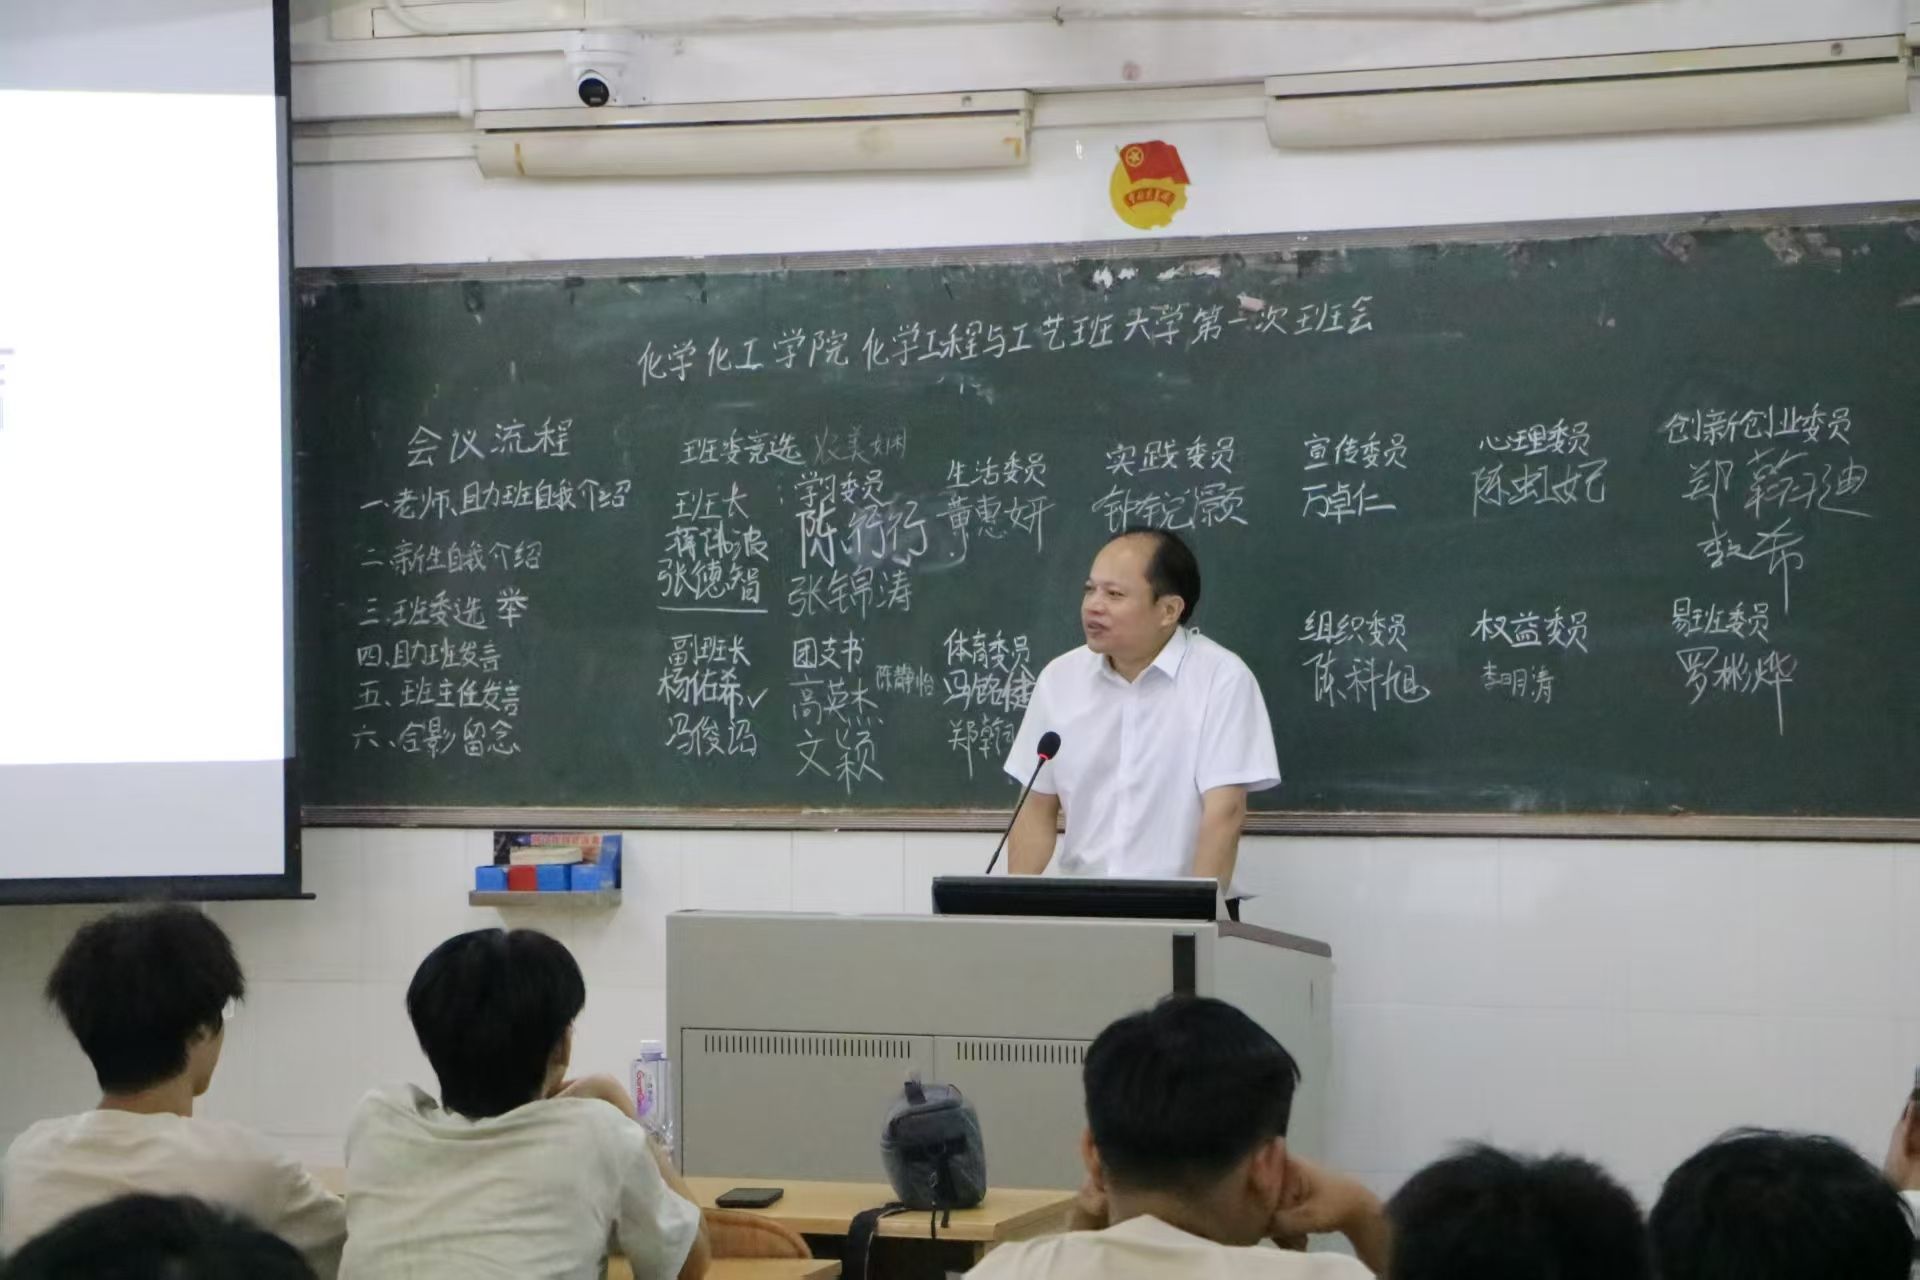 化学化工学院化学工程与工艺班大学第一次班会
会议流程
一、老师、助班自我介绍
二、新生自我介绍
三、班委选举
四、助班发言
五、班主任发言
六、合影留念
班委竞选
班长
蒋伟波
张德智
副班长
杨佑希√
冯俊
学习委员
陈行行
张锦涛
团支书
高英杰
陈静怡
文颖
生活委员
黄惠妍
体育委员
冯铭健
郑
实践委员
钟锐灏
宣传委员
万卓仁
组织委员
陈科旭
心理委员
陈虹妃
权益委员
李明涛
创新创业委员
郑 迪
李希
易班委员
罗彬烨